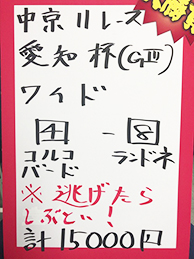 中京11レース
愛知杯(GⅢ)
ワイド
4 - 8
コルコバード ランドネ
※逃げたら
しぶとい!
計15000円